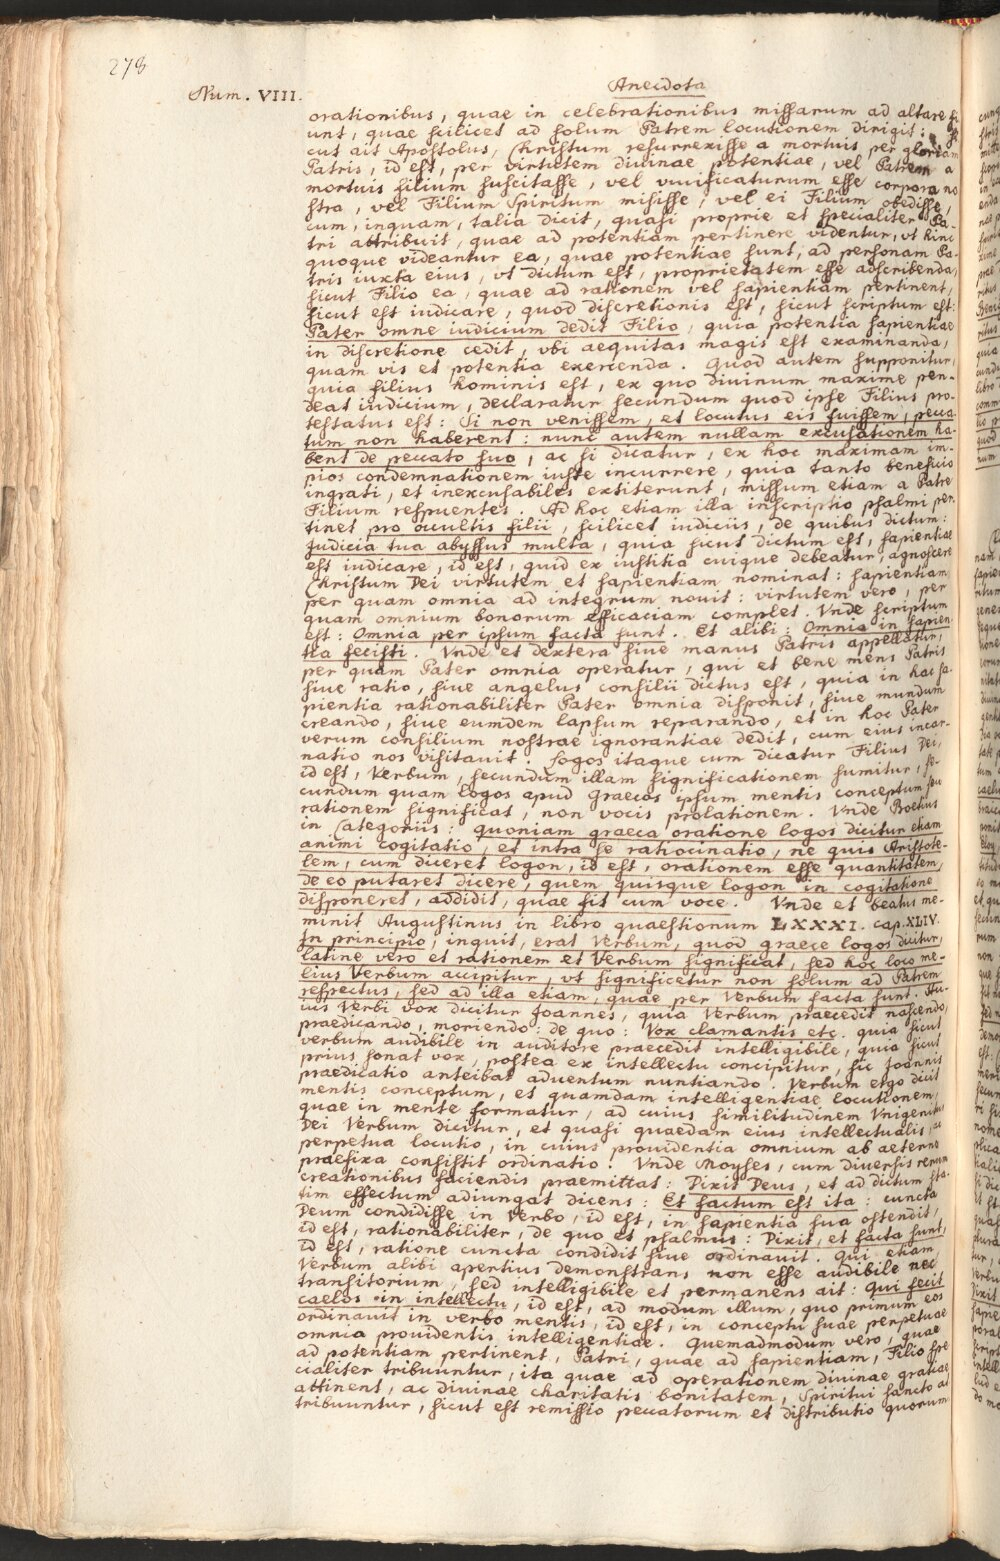 278
Num. VIII.
Anecdota
orationibus, quae in celebrationibus missarum ad altare fi
unt, quae scilicet ad solum Patrem locutionem dirigit: si
cut ait Apostolus, Christum resurrexisse a mortuis per gloriam
Patris, id est, per virtutem diuinae potentiae, vel Patrem a
mortuis filium suscitasse, vel viuificaturum esse corpora no
stra, vel Filium Spiritum misisse, vel ei Filium obedisse,
cum, inquam, talia dicit, quasi proprie et specialiter Pa-
tri attribuit, quae ad potentiam pertinere videntur, vt hinc
quoque videantur ea, quae potentiae sunt, ad personam Pa-
tris iuxta eius, vt dictum est, proprietatem esse adscribenda,
sicut Filio ea, quae ad rationem vel sapientiam pertinent,
sicut est iudicare, quod discretionis est, sicut scriptum est:
Pater omne iudicium dedit Filio, quia potentia sapientiae
in discretione cedit, vbi aequitas magis est examinanda,
quam vis et potentia exercenda. Quod autem supponitur,
quia filius hominis est, ex quo diuinum maxime pen-
deat iudicium, declaratur secundum quod ipse Filius pro-
testatus est: Si non venissem, et locutus eis fuissem, pecca-
tum non haberent: nunc autem nullam excusationem ha-
bent de peccato suo, ac si dicatur, ex hoc maximam im-
pios condemnationem iuste incurrere, quia tanto beneficio
ingrati, et inexcusabiles extiterunt, missum etiam a Patre
Filium respuentes. Ad hoc etiam illa inscriptio psalmi per-
tinet pro occultis filii, scilicet iudiciis, de quibus dictum:
Judicia tua abyssus multa, quia sicut dictum est, sapientiae
est iudicare, id est, quid ex iustitia cuique debeatur, agnoscere
Christum Dei virtutem et sapientiam nominat: sapientiam
per quam omnia ad integrum nouit: virtutem vero, per
quam omnium bonorum efficaciam complet. Vnde scriptum
est: Omnia per ipsum facta sunt. Et alibi: Omnia in sapien-
tia fecisti. Vnde et dextera siue manus Patris appellatur,
per quam Pater omnia operatur, qui et bene mens Patris
siue ratio, siue angelus consilii dictus est, quia in hac sa-
pientia rationabiliter Pater omnia disponit, siue mundum
creando, siue eumdem lapsum reparando, et in hoc Pater
verum consilium nostrae ignorantiae dedit, cum eius incar-
natio nos visitauit. Logos itaque cum dicatur Filius Dei,
id est, Verbum, secundum illam significationem sumitur, se-
cundum quam logos apud Graecos ipsum mentis conceptum seu
rationem significat, non vocis prolationem. Vnde Boetius
in Categoriis: quoniam graeca oratione logos dicitur etiam
animi cogitatio, et intra se ratiocinatio, ne quis Aristote-
lem, cum diceret logon, id est, orationem esse quantitatem,
de eo putaret dicere, quem quisque logon in cogitatione
disponeret, addidit, quae fit cum voce. Vnde et beatus me-
minit Augustinus in libro quaestionum LXXXI. cap. XLIV.
In principio, inquit, erat Verbum, quod graece logos dicitur,
latine vero et rationem et Verbum significat, sed hoc loco me-
lius Verbum accipitur, vt significetur non solum ad Patrem
respectus, sed ad illa etiam, quae per Verbum facta sunt. Hu-
ius Verbi vox dicitur Joannes, quia Verbum praecedit nascendo,
praedicando, moriendo: de quo: Vox clamantis etc. quia sicut
verbum audibile in auditore praecedit intelligibile, quia sicut
prius sonat vox, postea ex intellectu concipitur, sic Joannis
praedicatio anteibat aduentum nuntiando. Verbum ergo dicit
mentis conceptum, et quamdam intelligentiae locutionem,
quae in mente formatur, ad cuius similitudinem Vnigenitus
Dei Verbum dicitur, et quasi quaedam eius intellectualis, ac
perpetua locutio, in cuius prouidentia omnium ab aeterno
praefixa consistit ordinatio. Vnde Moyses, cum diuersis rerum
creationibus faciendis praemittat: Dixit Deus, et ad dictum sta-
tim effectum adiungat dicens: Et factum est ita: cuncta
Deum condidisse in Verbo, id est, in sapientia sua ostendit,
id est, rationabiliter, de quo et psalmus: Dixit, et facta sunt,
id est, ratione cuncta condidit siue ordinauit. Qui etiam
Verbum alibi apertius demonstrans non esse audibile nec
transitorium, sed intelligibile et permanens ait: Qui fecit
caelos in intellectu, id est, ad modum illum, quo primum eos
ordinauit in verbo mentis, id est, in conceptu suae perpetuae
omnia prouidentis intelligentiae. Quemadmodum vero, quae
ad potentiam pertinent, Patri, quae ad sapientiam, Filio spe
cialiter tribuuntur, ita quae ad operationem diuinae gratiae
attinent, ac diuinae charitatis bonitatem, Spiritui sancto at
tribuuntur, sicut est remissio peccatorum et distributio quorum